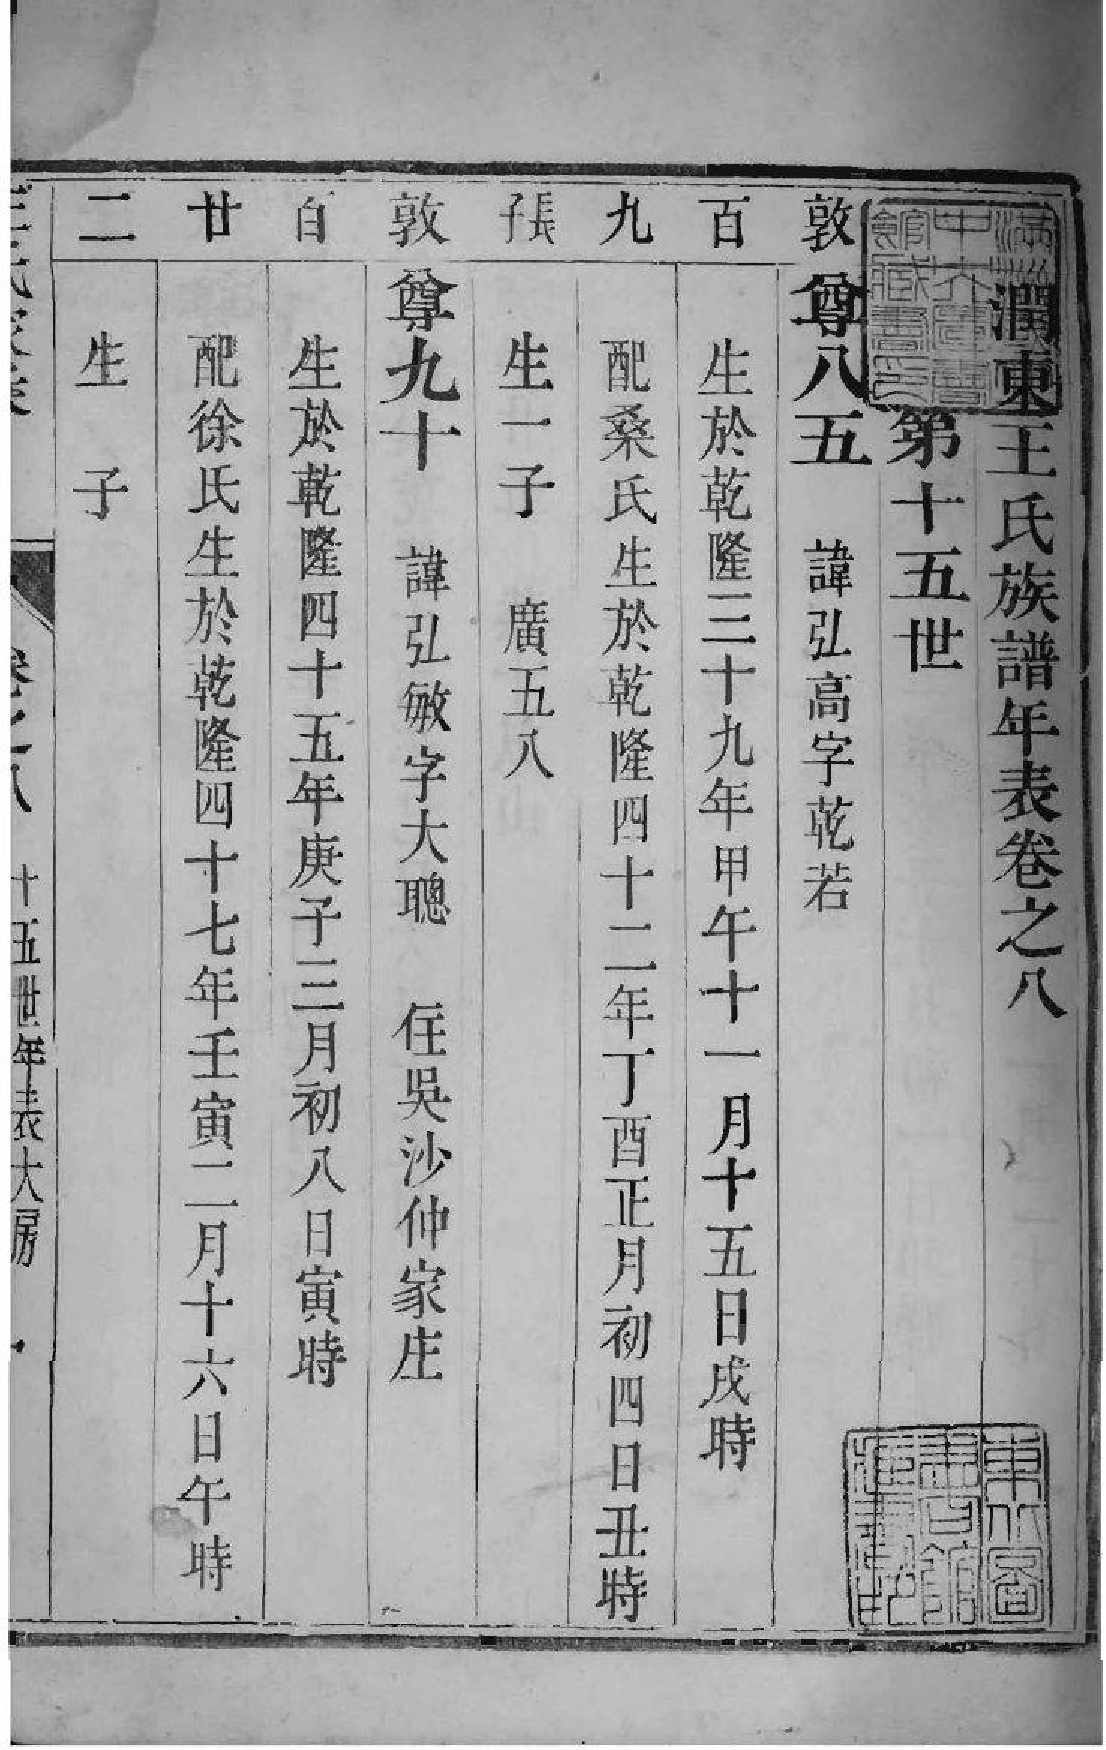 潤東王氏族譜年表卷之八
第十五世
敦 尊八五 諱弘高字乾若
百 生於乾隆三十九年甲午十一月十五日戌時
九 配桑氏生於乾隆四十二年丁酉正月初四日丑時
張子 生一子 廣五八
敦 尊九十 諱弘敏字大聰 住吳沙仲家庄
百 生於乾隆四十五年庚子三月初八日寅時
廿 配徐氏生於乾隆四十七年壬寅二月十六日午時
二 生 子
卷之八 十五世年表大房 一
滿洲
中央圖書
館藏書印
東北圖
書館